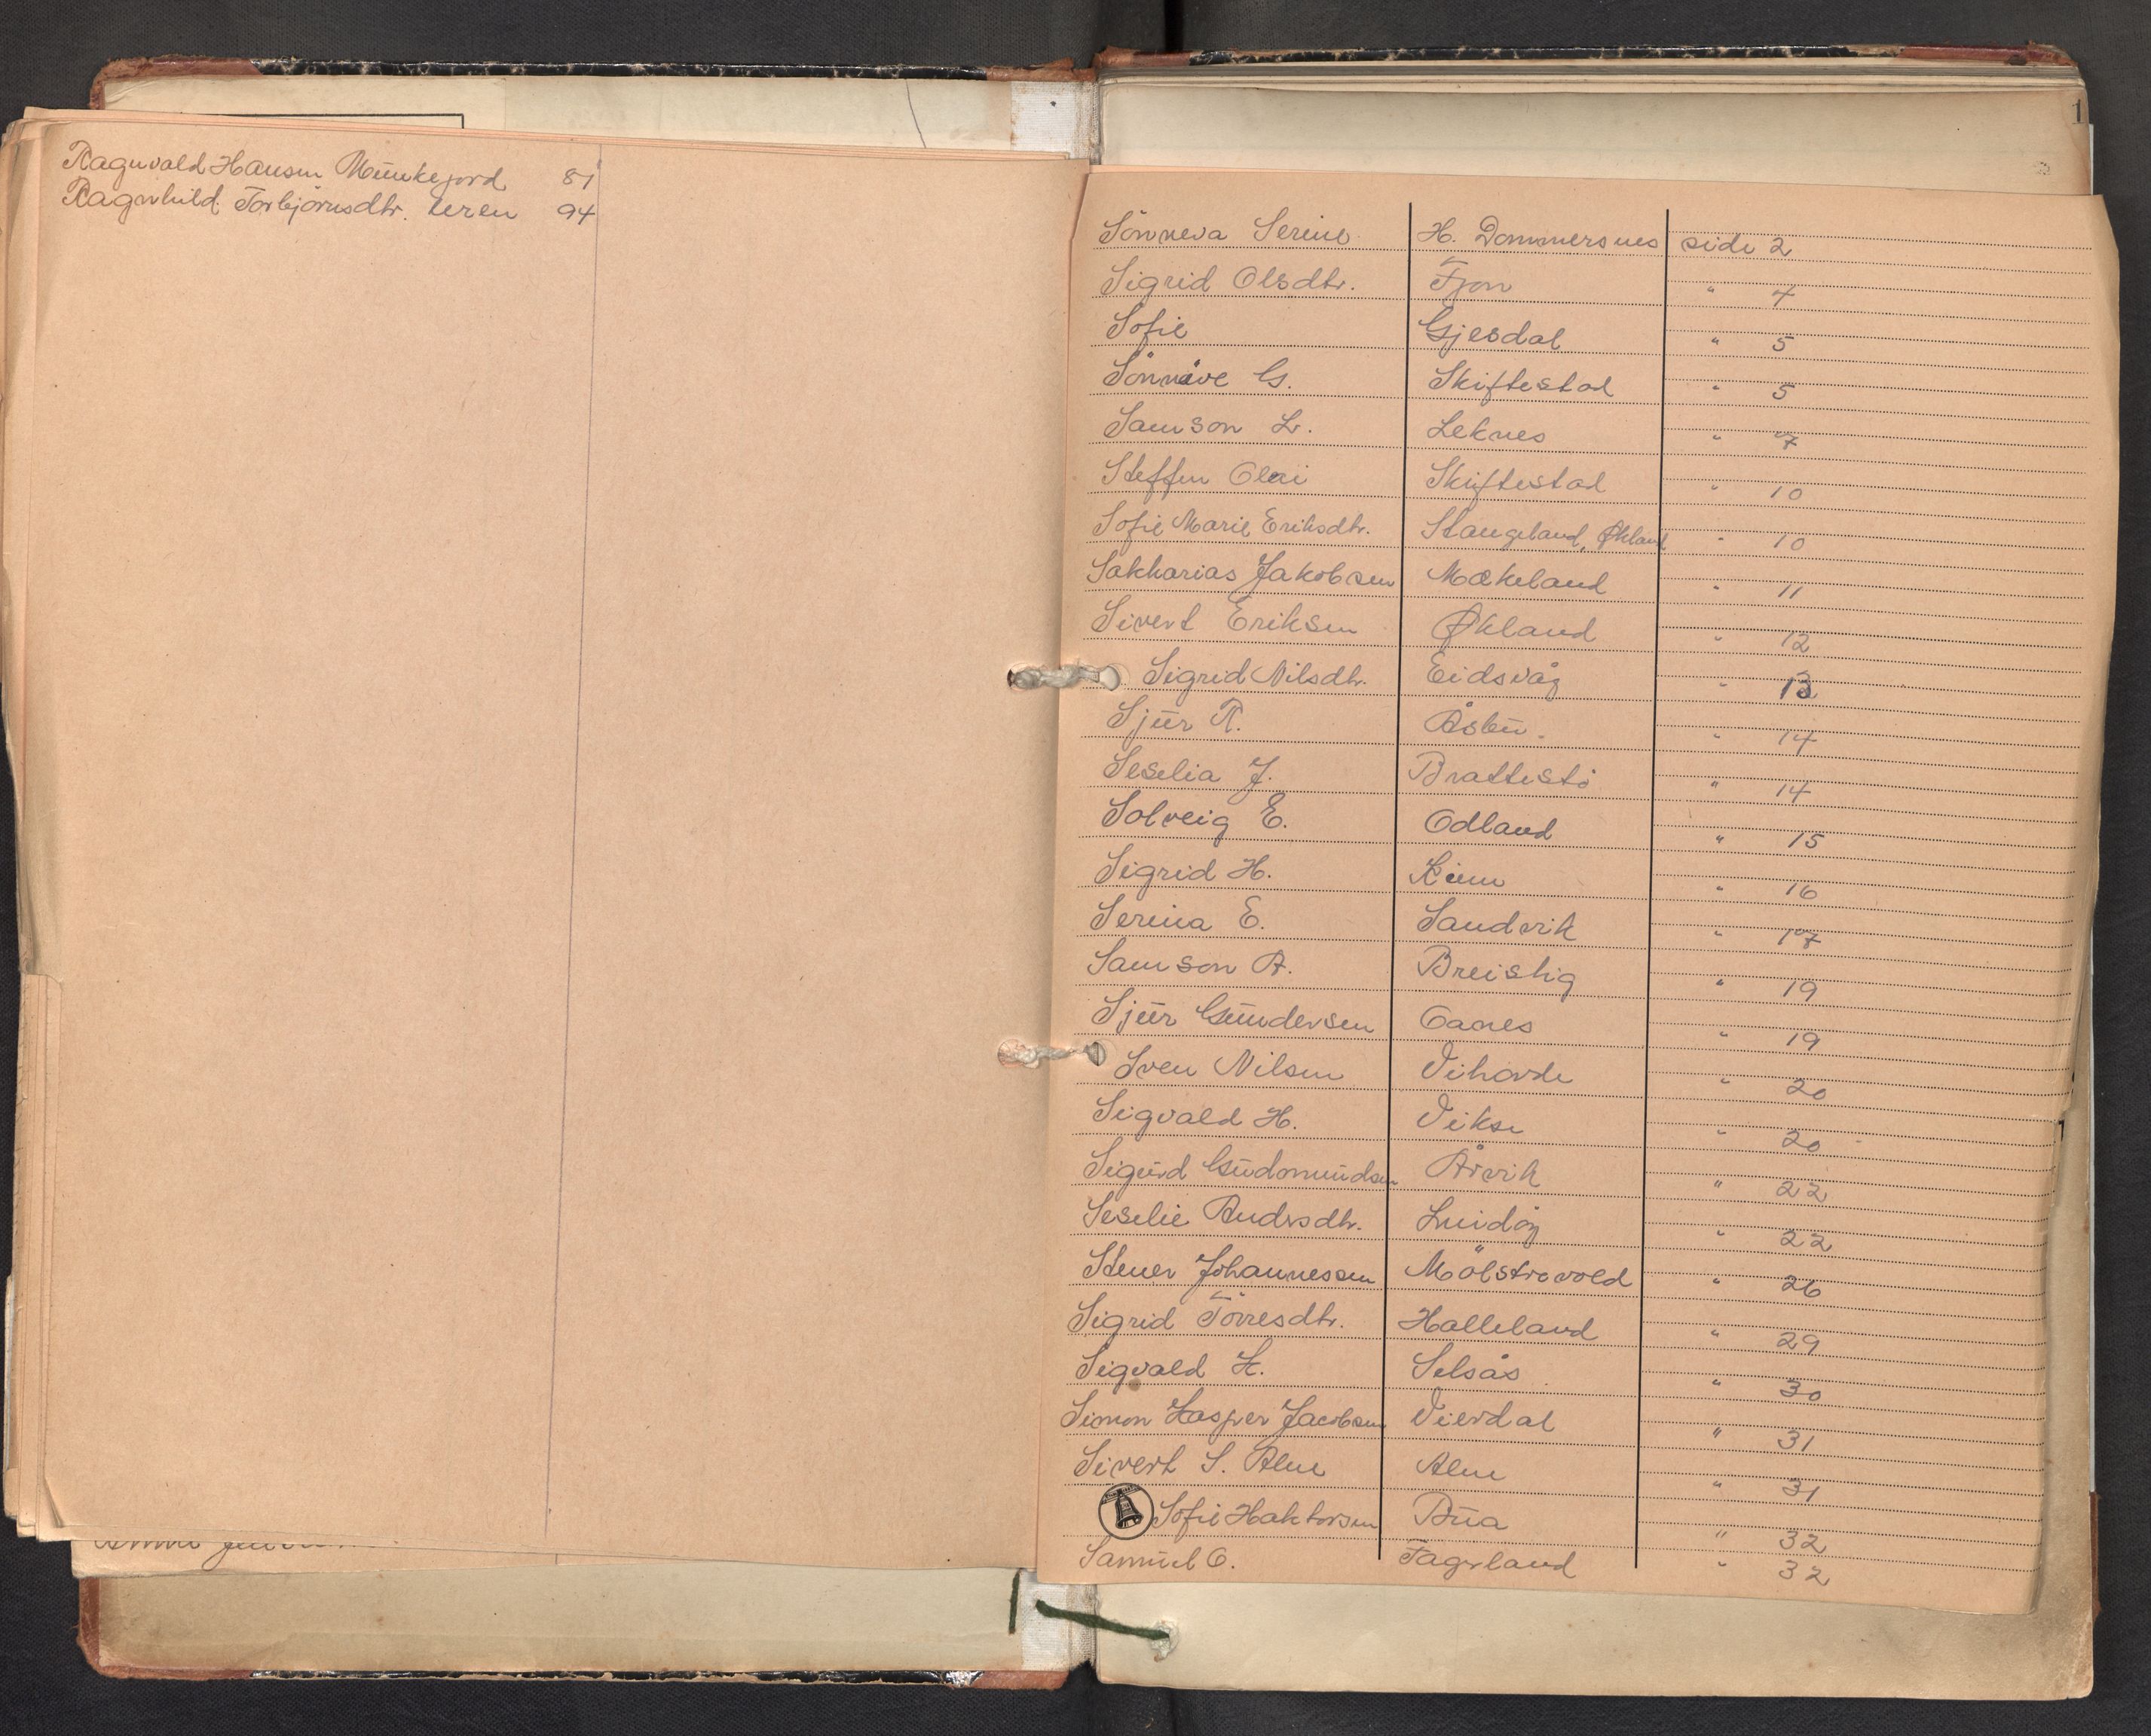 Ragnvald Hansen Munkejord 81
Ragnhild Torbjörnsdtr. Leren 94
1
Sönneva Serine H. Dommersnes side 2
Sigrid Olsdtr. Fjon " 4
Sofie Gjesdal " 5
Sönnöve G. Skiftestad " 5
Samson L. Leknes " 7
Steffen Olai Skiftestad " 10
Sofie Marie Eriksdtr. Stangeland, Økland " 10
Sakkarias Jakobsen Mækeland " 11
Sivert Eriksen Økland " 12
Sigrid Nilsdtr. Eidsvåg " 13
Sjur R. Åsbu " 14
Seselia J. Brattestö " 14
Solveig E. Odland " 15
Sigrid H. " 16
Serina E. Sandvik " 17
Samson A. Breistig " 19
Sjur Gundersen Oanes " 19
Sven Nilsen Vihovde " 20
Sigvald H. Vikse " 20
Sigurd Gudmundsen Årvik " 22
Seselie Andrsdtr. " 22
Stener Johannessen Mölstrevold " 26
Sigrid Törresdtr. Halleland " 29
Sigvald K. Selsås " 30
Simon Kasper Jacobsen Vierdal " 31
Sivert S. Alne Alne " 31
Sofie Haktorsen Bua " 32
Samuel O. Fagerland " 32